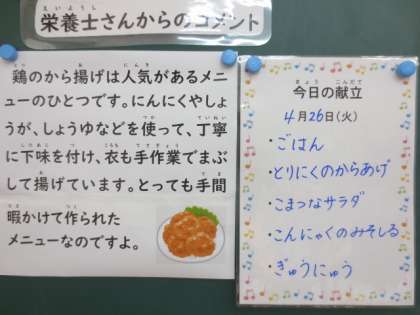 栄養士さんからのコメント
鶏のから揚げは人気があるメニ
ューのひとつです。にんにくやしょ
うが、しょうゆなどを使って、丁寧
に下味を付け、衣も手作業でまぶ
して揚げています。とっても手間
暇かけて作られた
メニューなのですよ。
今日の献立
4月26日(火)
・ごはん
・とりにくのからあげ
・こまつなサラダ
・こんにゃくのみそしる
・ぎゅうにゅう